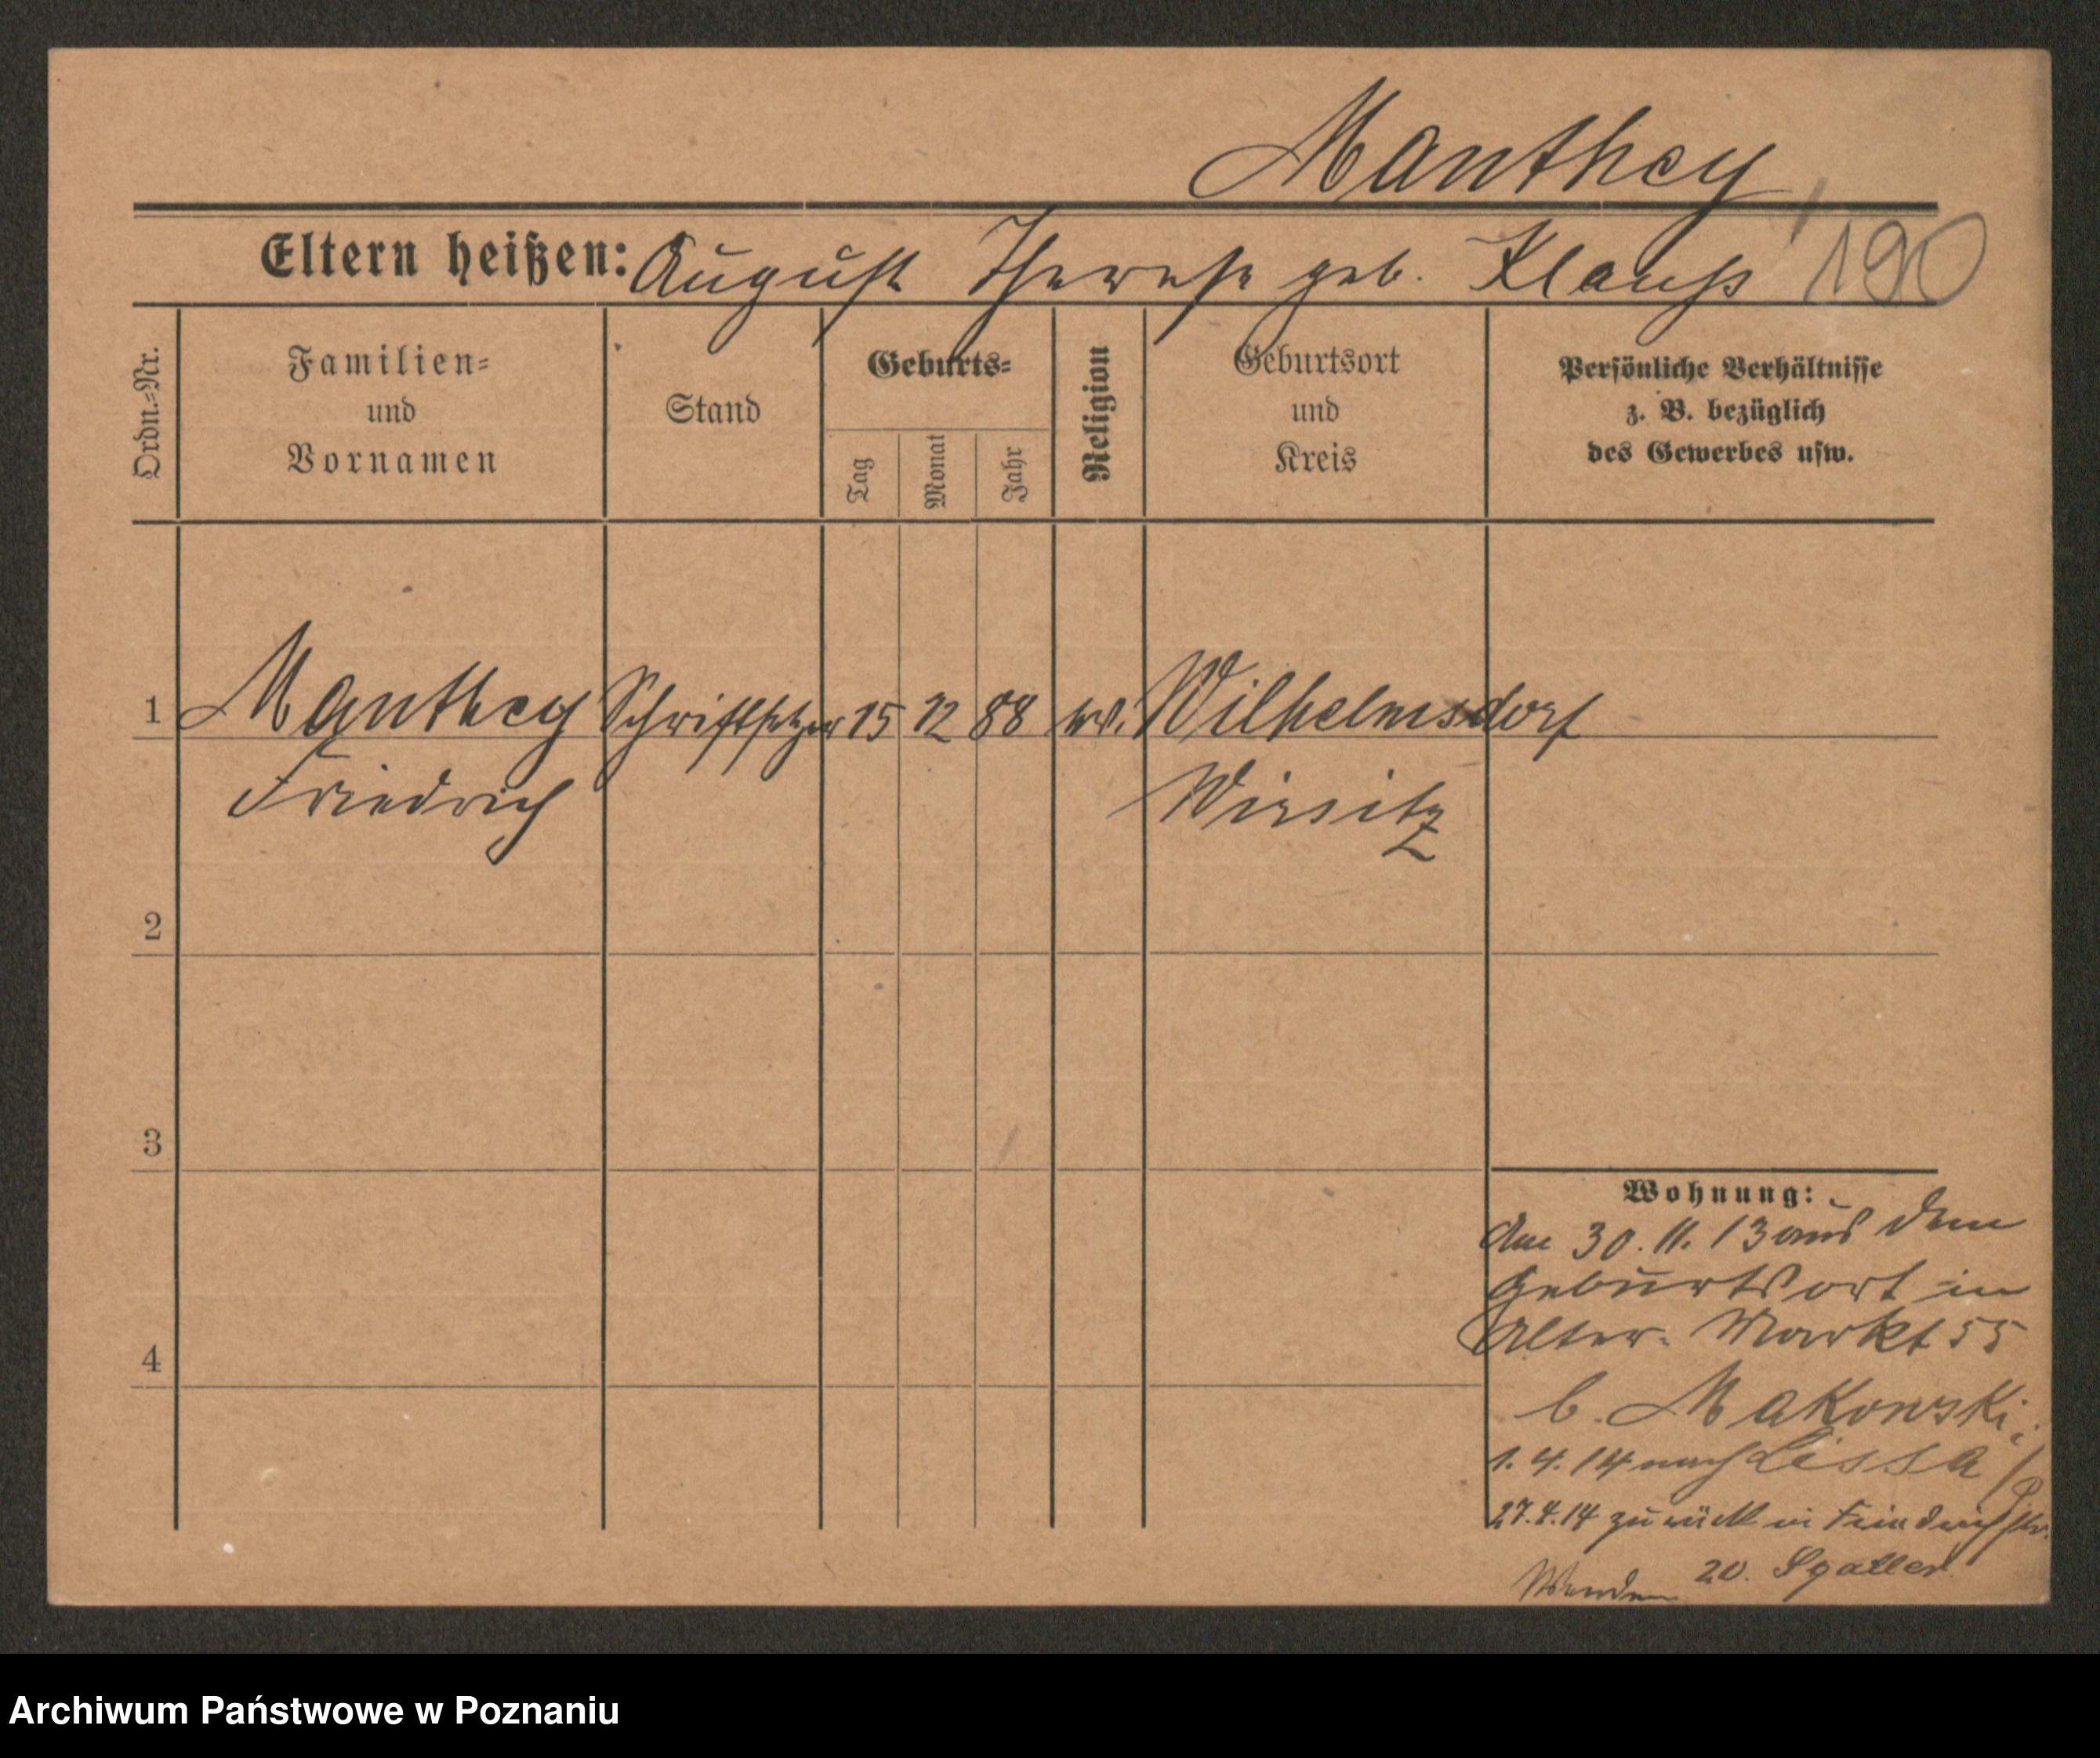 Manthey
Eltern heißen: August Therese geb. Klauß 190
Ordn.-Nr.
Familien-
und
Vornamen
Stand
Geburts-
Tag
Monat
Jahr
Religion
Geburtsort
und
Kreis
Persönliche Verhältnisse
z. B. bezüglich
des Gewerbes usw.
1 Manthey Schriftsetzer 15 12 88 ev. Wilhelmsdorf
Friedrich Wirsitz
2
3
4
Wohnung:
Am 30.11.13 aus dem
Geburtsort in
Alter-Markt 55
b. Makowski
1.4.14 nach Lissa /P
27.4.14 zurück in Friedrichstr.
20.
Archiwum Państwowe w Poznaniu